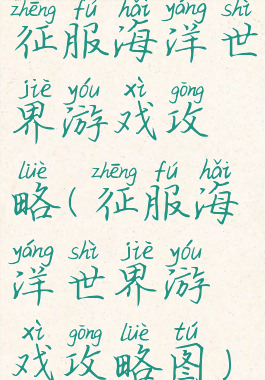 zhēng fú hǎi yáng shì
征服海洋世
jiè yóu xì gōng
界游戏攻
lüè zhēng fú hǎi
略(征服海
yáng shì jiè yóu
洋世界游
xì gōng lüè tú
戏攻略图)